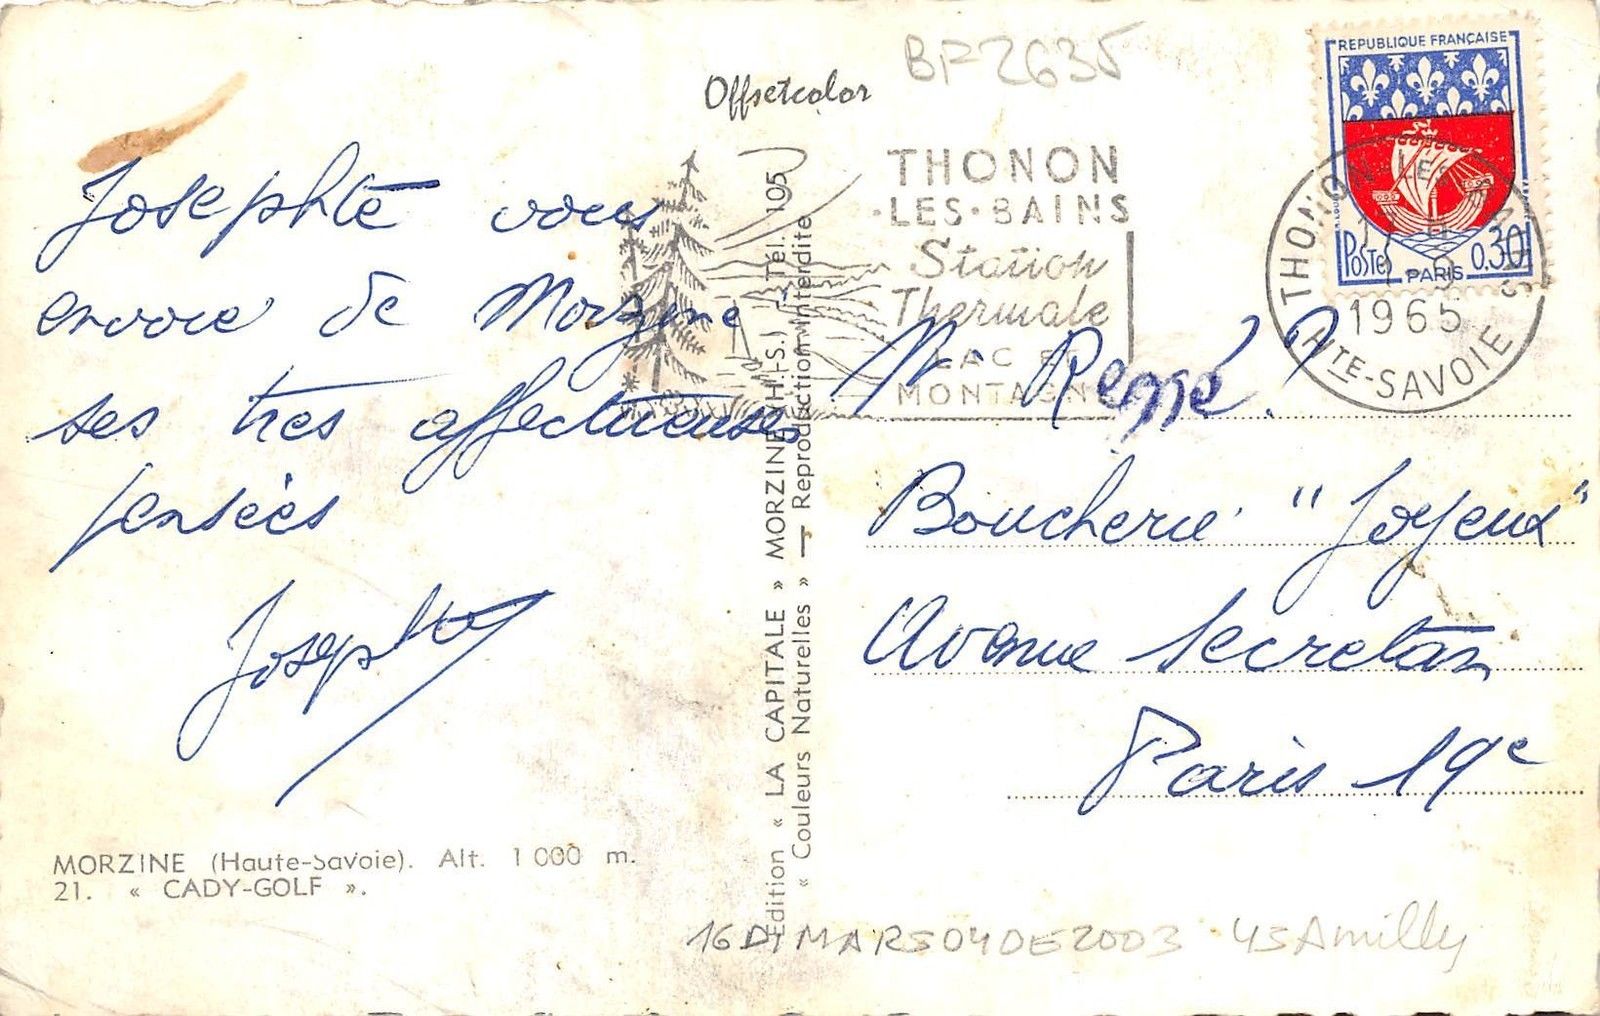 BF2635
Offsetcolor
REPUBLIQUE FRANÇAISE
POSTES
PARIS
0,30
THONON-LES-BAINS
1965
HTE-SAVOIE
THONON
·LES·BAINS
Station
Thermale
LAC ET
MONTAGNE
Josephte vous
envoie de Morzine
ses tres affectueuses
pensées
Josephte
MORZINE (Haute-Savoie). Alt. 1 000 m.
21. « CADY-GOLF ».
Edition « LA CAPITALE » MORZINE (H.-S.) - Tél. 105
« Couleurs Naturelles » — Reproduction Interdite
Mr René
Boucherie "Joyeux"
Avenue Secretan
Paris 19e
16DIMARS04DE2003 45Amilly